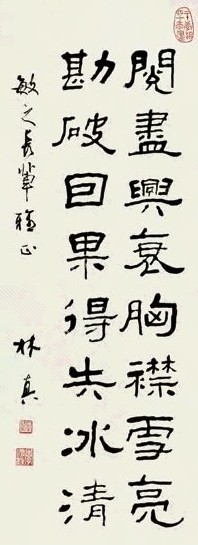 閱盡興衰胸襟雪亮
勘破因果得失冰清
敏之長輩雅正
林真